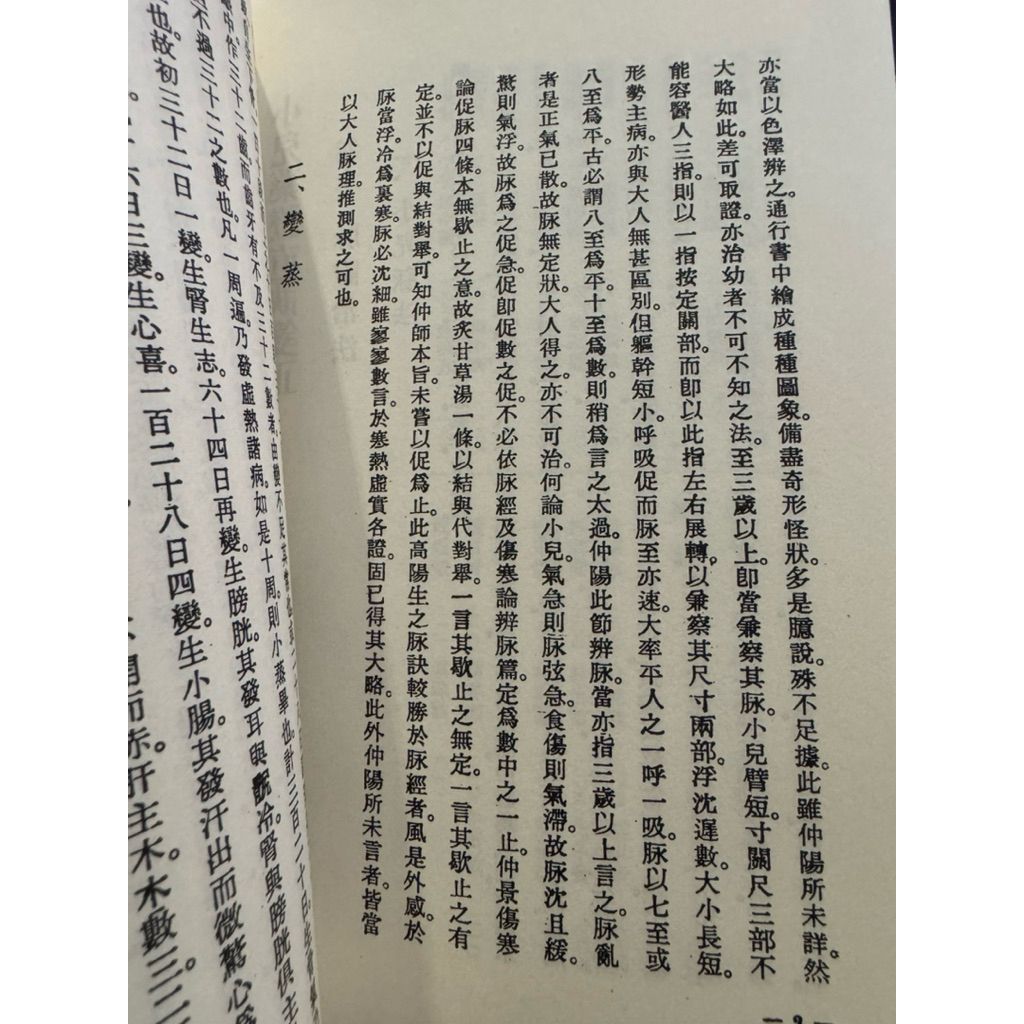 亦當以色澤辨之。通行書中繪成種種圖象。備盡奇形怪狀。多是臆說。殊不足據。此雖仲陽所未詳。然
大略如此。差可取證。亦治幼者不可不知之法。至三歲以上。卽當兼察其脉。小兒臂短。寸關尺三部不
能容醫人三指。則以一指按定關部。而卽以此指左右展轉。以兼察其尺寸兩部。浮沈遲數。大小長短。
形勢主病。亦與大人無甚區別。但軀幹短小。呼吸促而脉至亦速。大率平人之一呼一吸。脉以七至或
八至爲平。古必謂八至爲平。十至爲數。則稍爲言之太過。仲陽此節辨脉。當亦指三歲以上言之。脉亂
者是正氣已散。故脉無定狀。大人得之。亦不可治。何論小兒。氣急則脉弦急。食傷則氣滯。故脉沈且緩。
驚則氣浮。故脉爲之促急。促卽促數之促。不必依脉經及傷寒論辨脉篇。定爲數中之一止。仲景傷寒
論促脉四條。本無歇止之意。故炙甘草湯一條。以結與代對舉。一言其歇止之無定。一言其歇止之有
定。並不以促與結對舉。可知仲師本旨。未嘗以促爲止。此高陽生之脉訣較勝於脉經者。風是外感。於
脉當浮。冷爲裏寒。脉必沈細。雖寥寥數言。於寒熱虛實各證。固已得其大略。此外仲陽所未言者。皆當
以大人脉理推測求之可也。
二、變蒸
中作三十二齒而齒牙有不及三十二數者。由變不足其常也
不過三十二之數也。凡一周遍。乃發虛熱諸病。如是十周。則小蒸畢也。計三百二十日
也。故初三十二日一變。生腎生志。六十四日再變。生膀胱。其發耳與骩冷。腎與膀胱俱主
六日三變。生心喜。一百二十八日四變。生小腸。其發汗出而微驚。心爲
而赤。肝主木。木數三